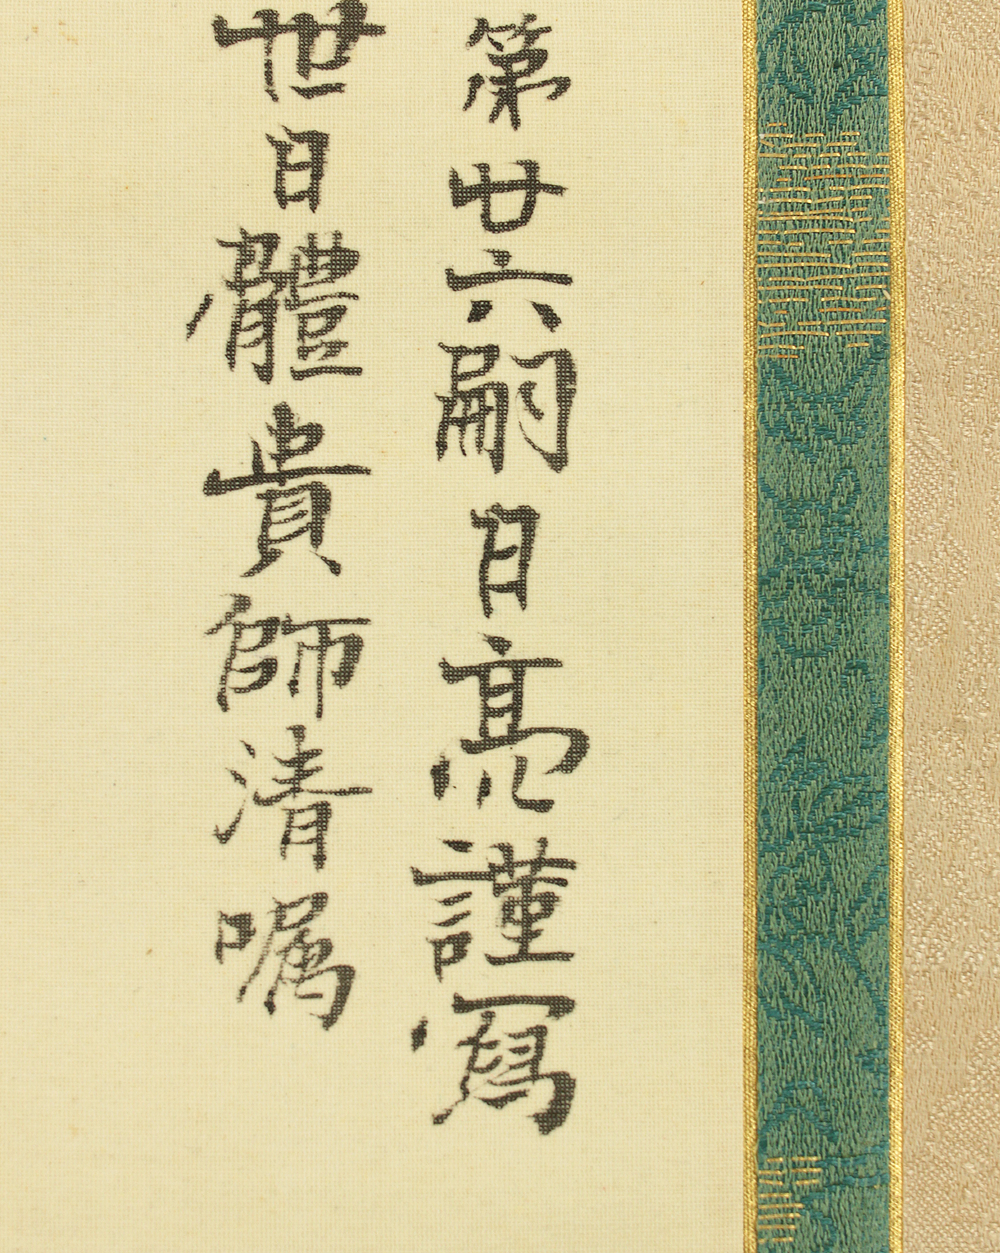 第廿六嗣日亮謹寫
世日體貴師清嘱